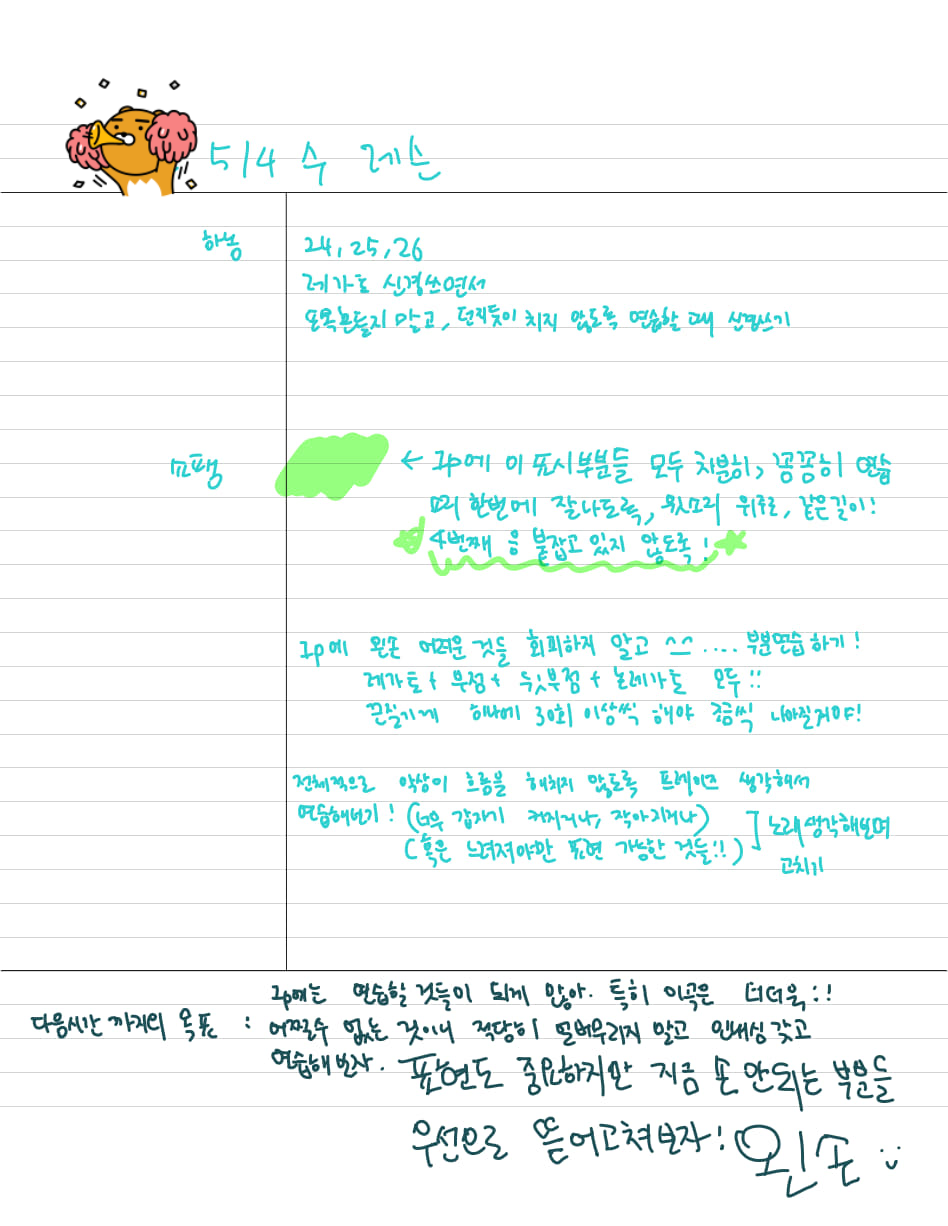 5/4 수 레슨
하농
24, 25, 26
레가토 신경쓰면서
손목흔들지 말고, 던지듯이 치지 않도록 연습할 때 신경쓰기
쇼팽
← 2p에 이 표시부분들 모두 차분히, 꼼꼼히 연습
소리 한번에 잘나도록, 윗소리 위주로, 같은길이!
4번째 음 붙잡고 있지 않도록!
2p에 왼손 어려운 것들 회피하지 말고 ^^.... 부분연습하기!
레가토 + 부점 + 뒷부점 + 논레가토 모두!!
끈질기게 하나에 30회 이상씩 해야 조금씩 나아질거야!
전체적으로 악상이 흐름을 해치지 않도록 프레이즈 생각해서
연습해보기! (너무 갑자기 커지거나, 작아지거나)
(혹은 느려져야만 표현 가능한 것들!!)
] 노래생각해보며
고치기
2p에는 연습할 것들이 되게 많아. 특히 이곡은 더더욱!!
다음시간 까지의 목표 : 어쩔수 없는 것이니 적당히 얼버무리지 말고 인내심 갖고
연습해보자. 표현도 중요하지만 지금 손 안되는 부분들
우선으로 뜯어고쳐보자! 왼손 :)